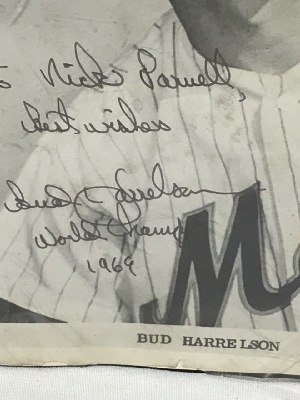 to Nick Parnell,
best wishes
Bud Harrelson
World Champs
1969
M
BUD HARRELSON